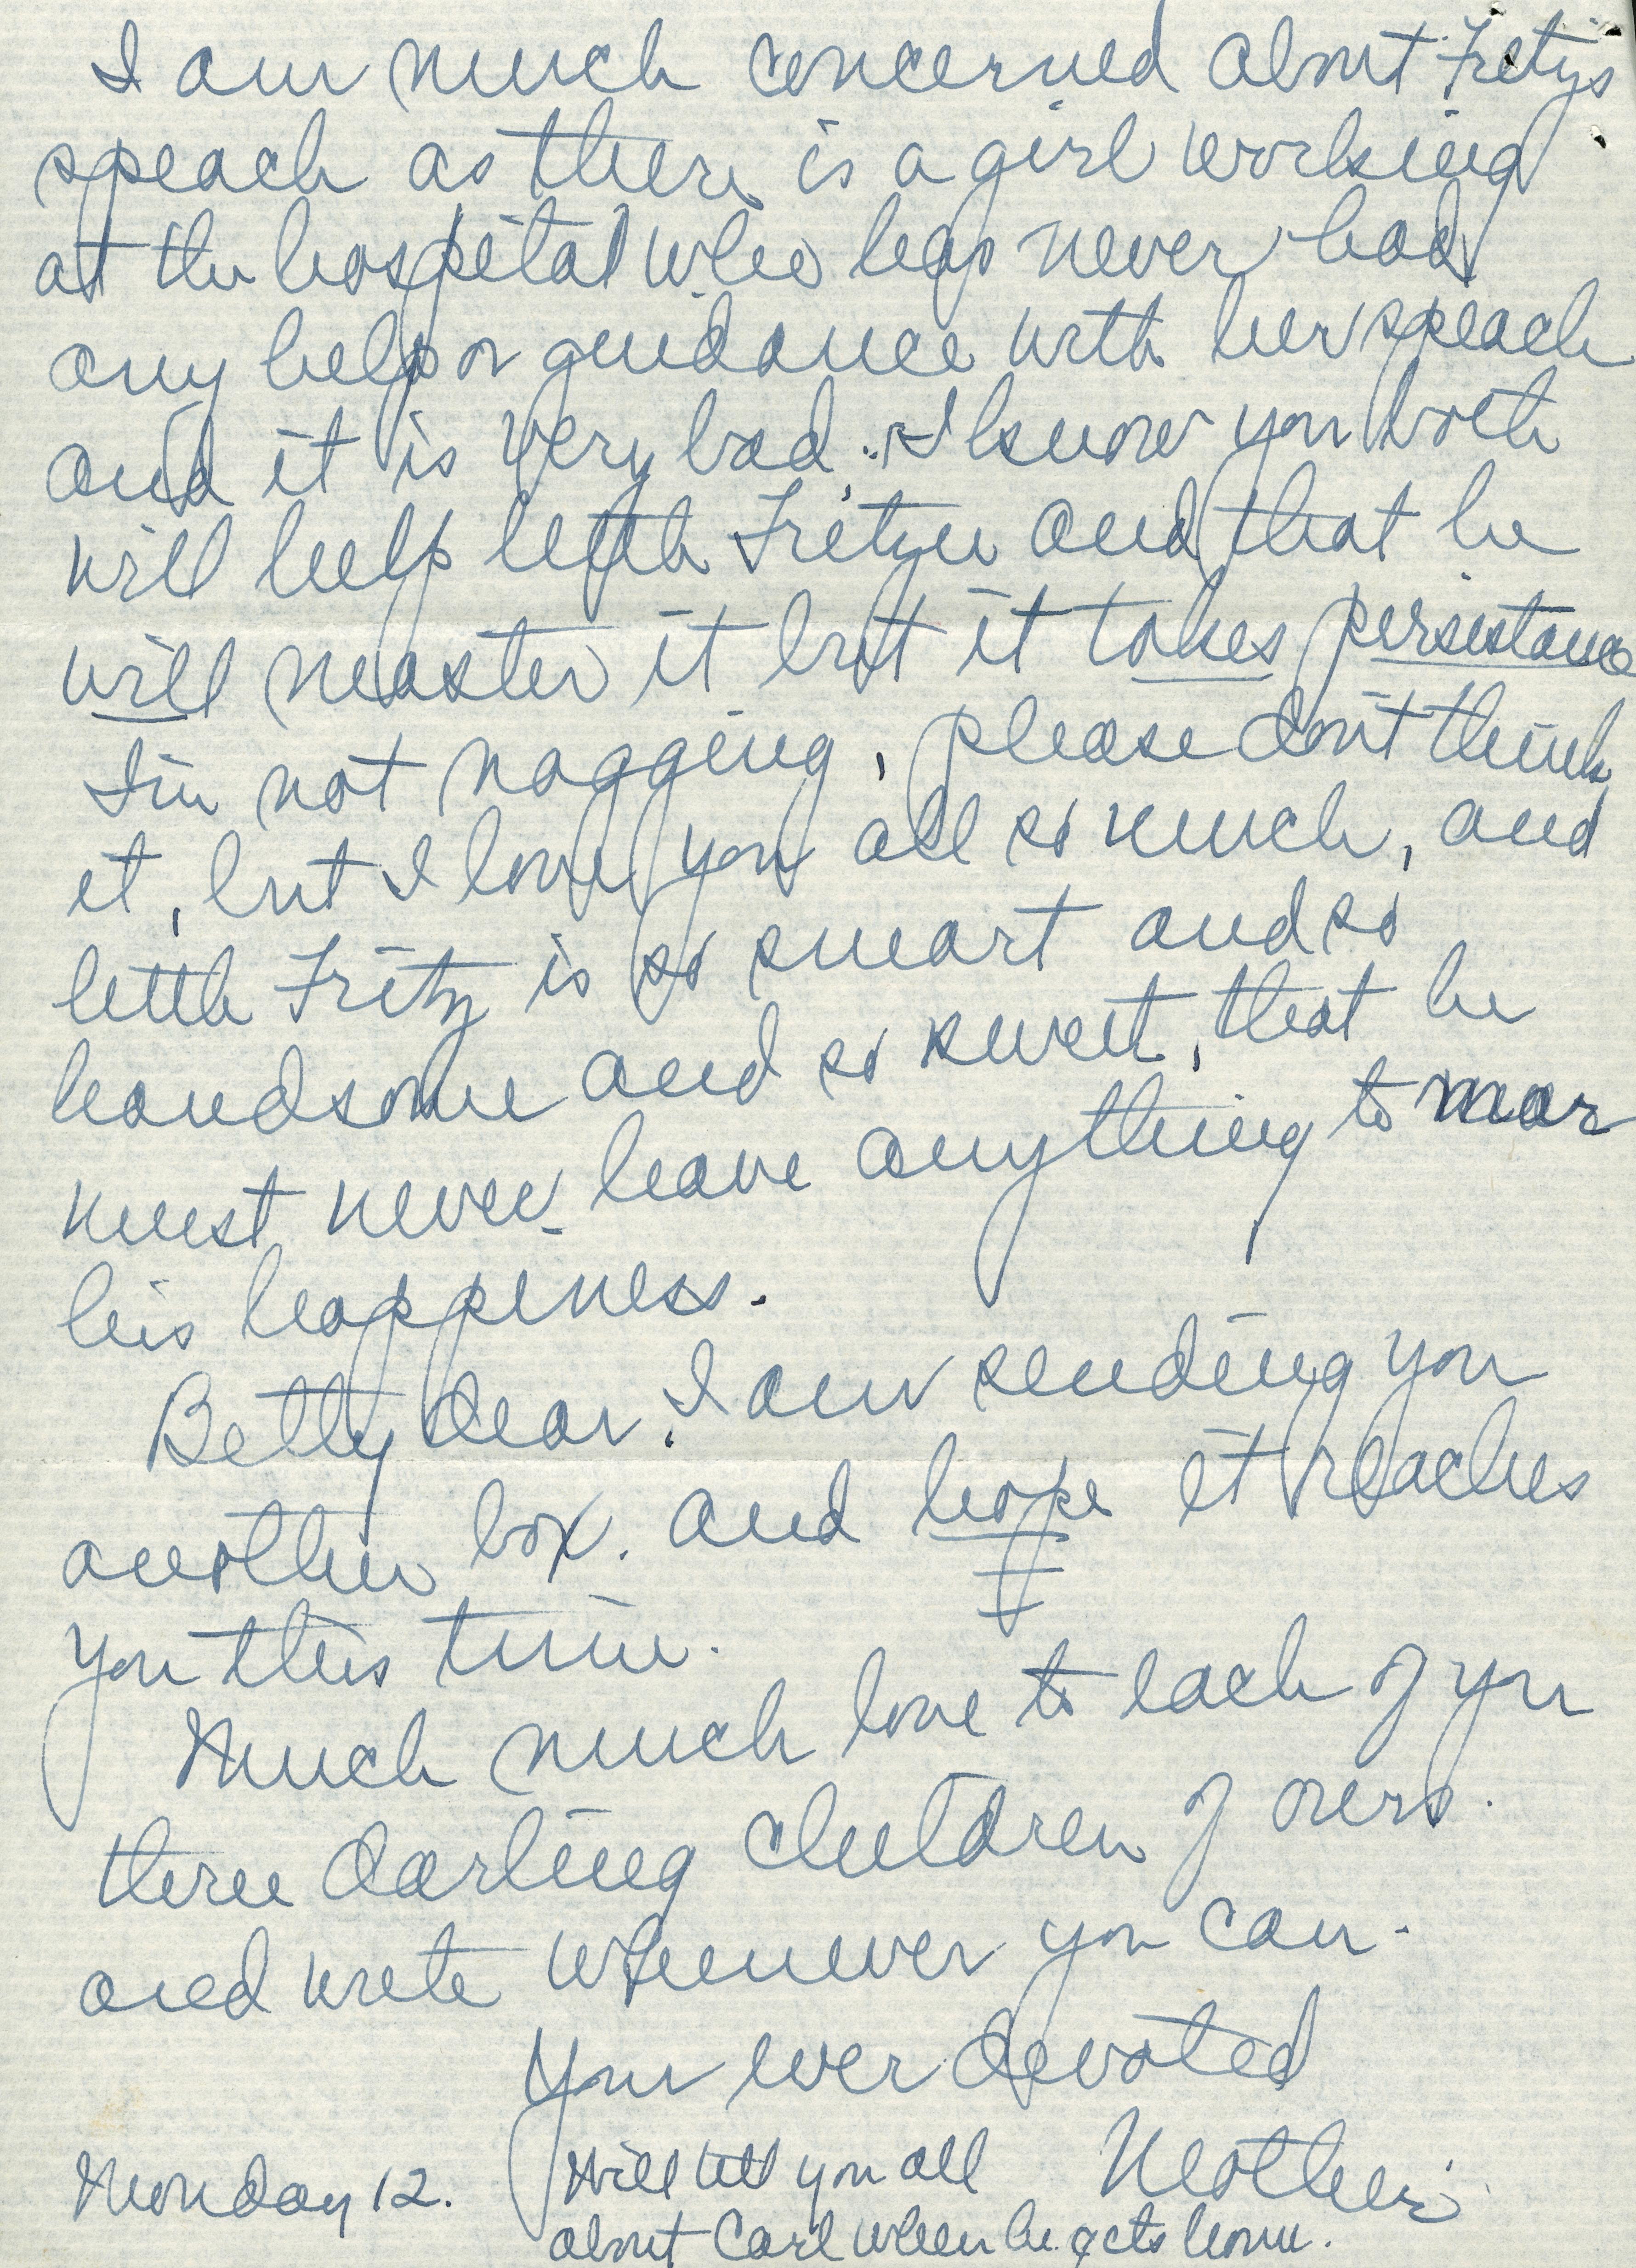 I am much concerned about Fritz's
speach as there is a girl working
at the hospital who has never had
any help or guidance with her speach
and it is very bad. I know you both
will help little Fritzie and that he
will master it but it takes persistance
I'm not nagging, please don't think
it, but I love you all so much, and
little Fritz is so smart and so
handsome and so sweet, that he
must never leave anything to mar
his happiness.
Betty dear, I am sending you
another box. and hope it reaches
you this time.
Much much love to each of you
three darling children of ours.
and write whenever you can.
Your ever devoted
Mother.
Monday 12.
Will tell you all
about Carl when he gets home.